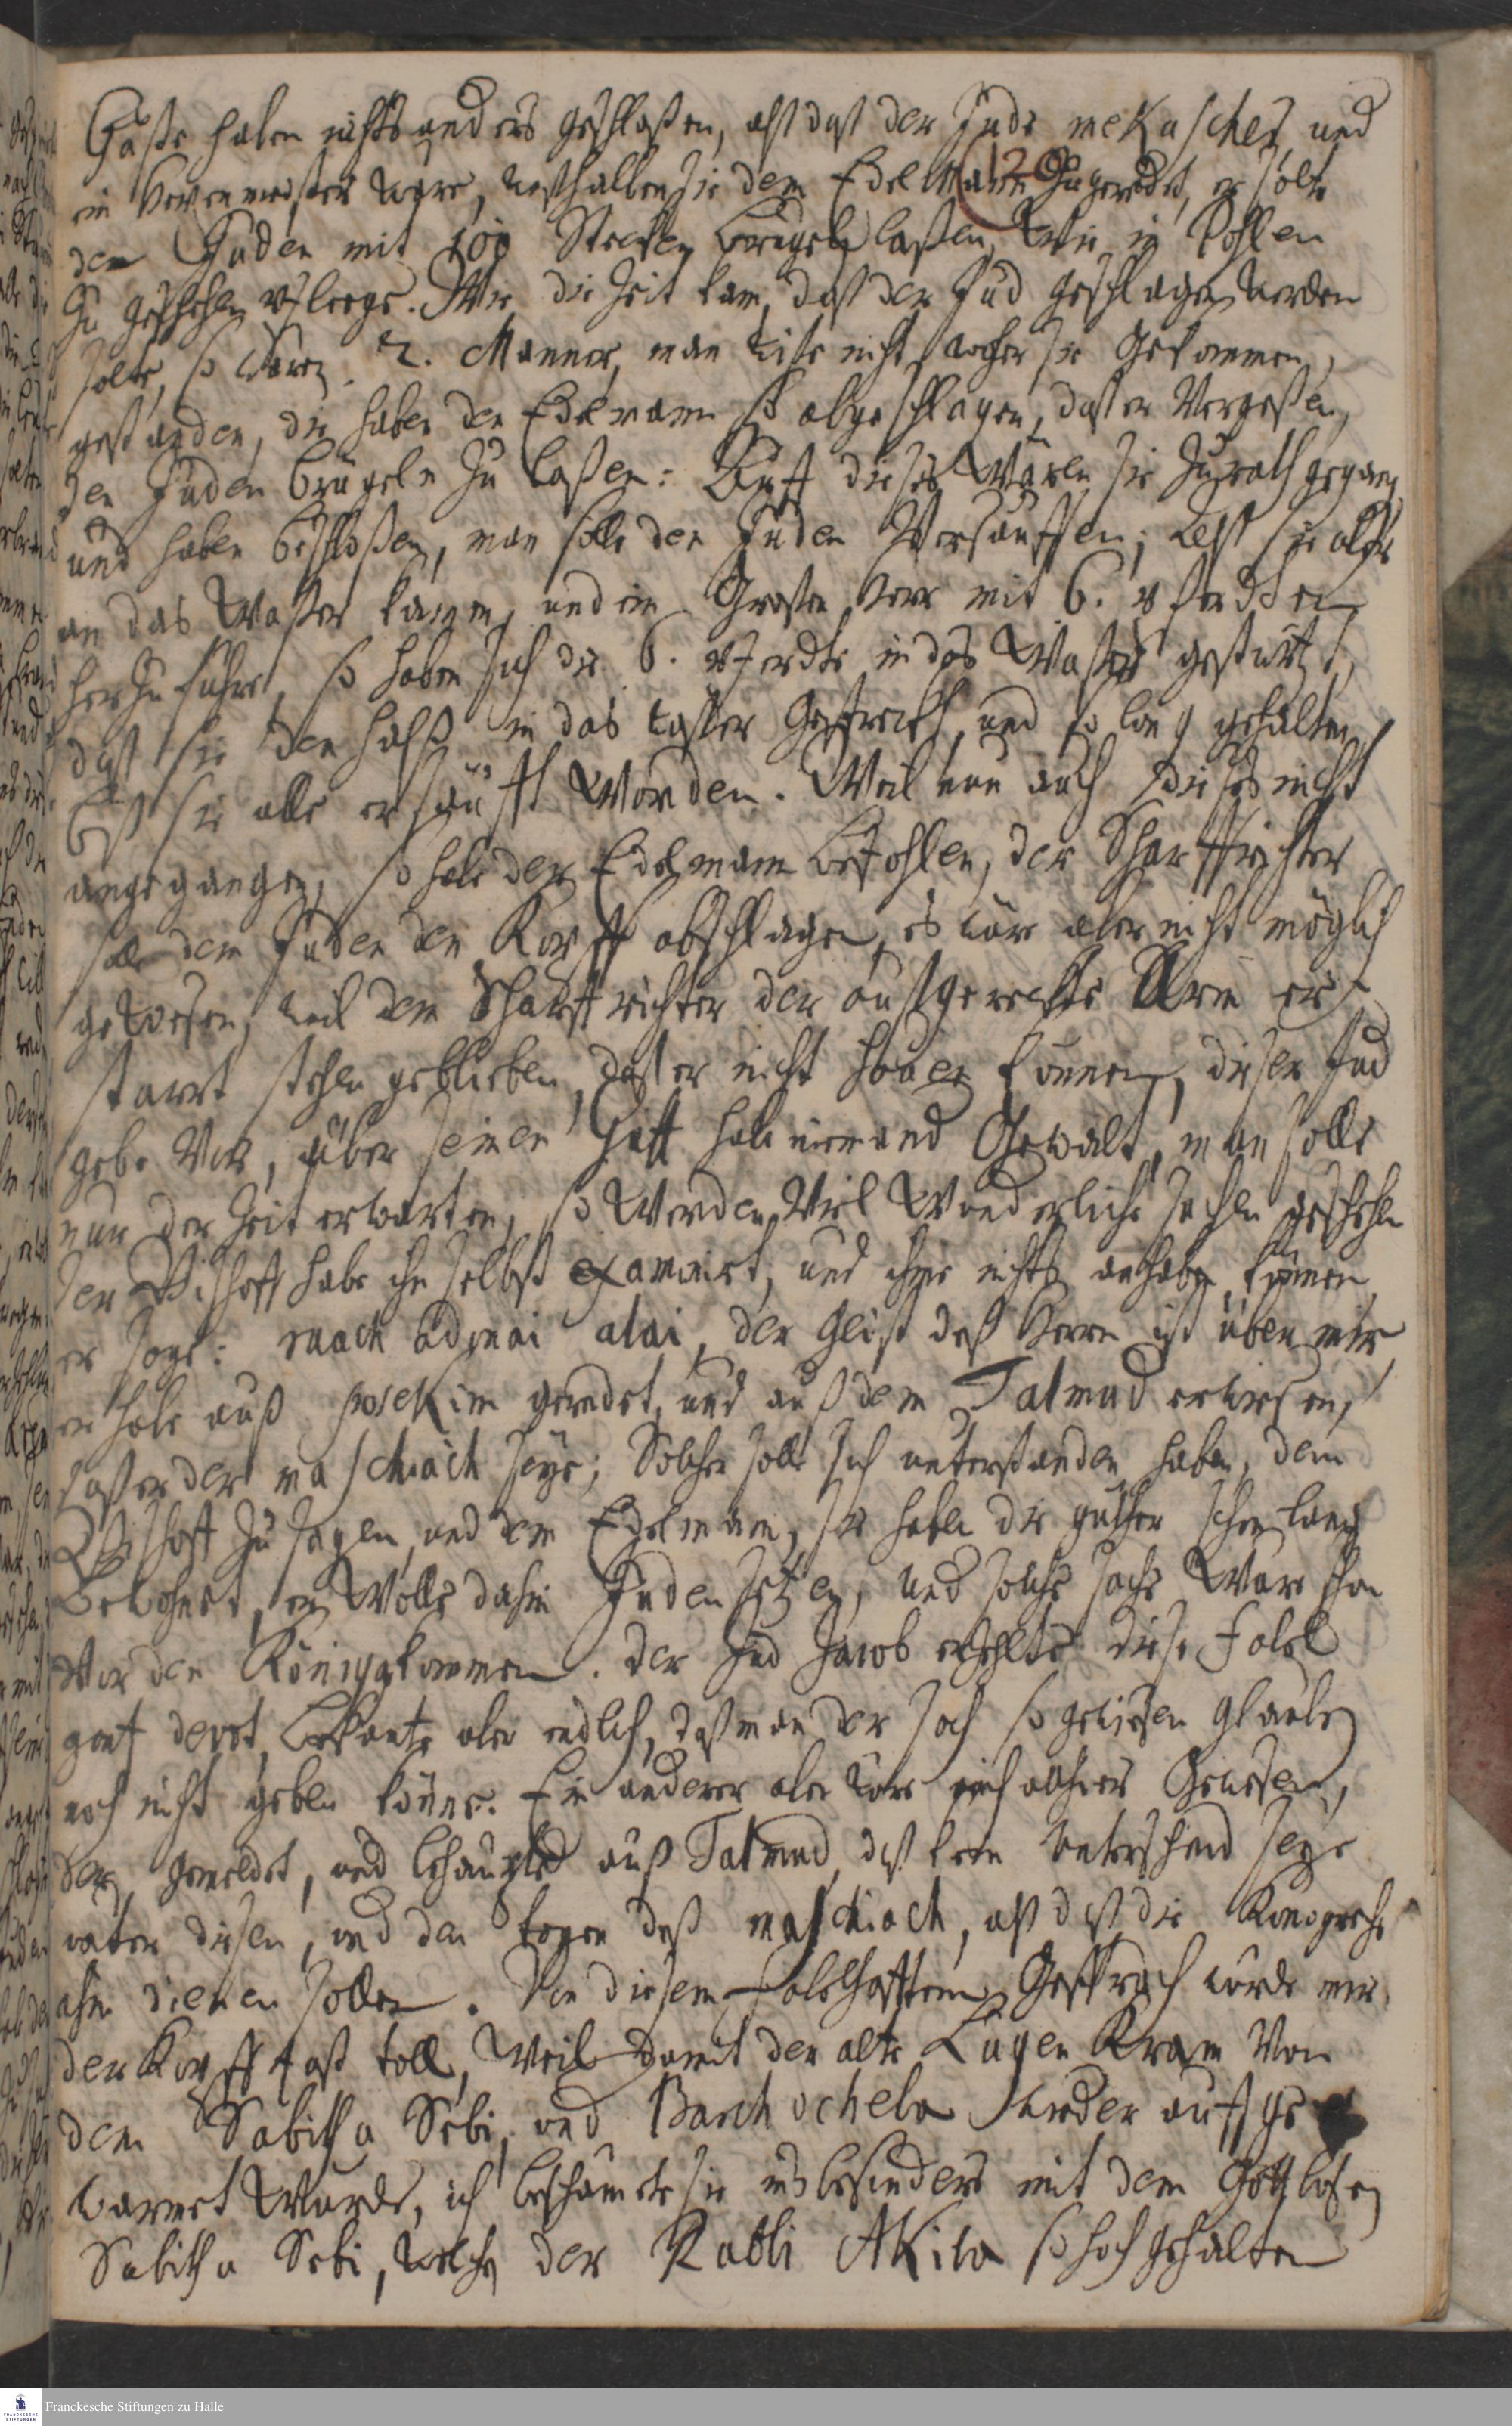 Gäste haben nichts anders geschloßen, alß daß der Jude meKascheF und
ein Hexenmeister wäre, weßhalben sie dem Edelmann Zugeredet, er solte
(120
den Juden mit 100 Steken brügeln laßen, Wie in Pohlen
Zu geschehen pfleege. Wie die Zeit kam, daß der Jud geschlagen werden
solte, so wären 2. Männer, man wiße nicht woher sie Gekommen,
gestanden, die haben den Edelmann so abgeschlagen, daß er Vergeßen,
den Juden brügeln Zu laßen: Auff dieses Wären sie Zu rath gegang
und haben beschloßen, man solle den Juden Versäuffen; alß sie alßo
an das Waßer kamen, und ein Großer Herr mit 6. pferdten
herZu fuhre, so haben sich die 6. pferdte in das Waßer gestürtzt,
daß sie den halß in das waßer Gestreckt, und so lang gehalten,
biß sie alle ersäufft Worden. Weil nun auch dieses nicht
angegangen, so habe der Edelmann befohlen, der Scharffrichter
solle dem Juden den Kopff abschlagen, es wäre aber nicht möglich
geweßen, weil dem Scharffrichter der außgereckte Arm er
starrt stehen geblieben, daß er nicht hauen können, dieser Jud
gebe Vor, über seinen Geist habe niemand Gewalt, man solle
nur der Zeit erwarten, so Werden Viel Wunderliche sachen geschehen
der Bischoff habe ihn selbst examinirt, und ihme nichts anhaben können,
er sage: ruach adonai alai, der Geist deß Herrn ist über mir
er habe auß posekim geredet, und auß dem Talmud erwießen,
daß er der maschiach seye; Solcher solle sich unterstanden haben, dem
Bischoff Zu sagen, und dem Edelmann, sie haben die güther schon lang
Bewohnet, er Wolle dahin Juden setzen, und solche sache Wäre schon
Vor den König gekommen. der Jud Jacob erzehlte diese Fabel
gantz devot, bekante aber endlich, daß man der sach so gewießen glauben
noch nicht geben könne. Ein anderer aber wäre noch Geweßen,
der gemeldet, und behauptet auß Talmud, daß kein Unterschied seye
unter diesen, und den tagen deß maschiach, alß daß die Königreiche
ihm dienen sollen. Von diesem Fabelhafften Gespräch wurde mir
der Kopff fast toll, Weil damit der alte Lügen Kram Von
dem Sabitha Sebi, und Barchocheba wieder auffge
wärmet Wurde, ich beschämte sie insbesonders mit dem Gottloßen
Sabitha Sebi, welchen der Rabbi AKiba so hoch gehalten
Franckesche Stiftungen zu Halle